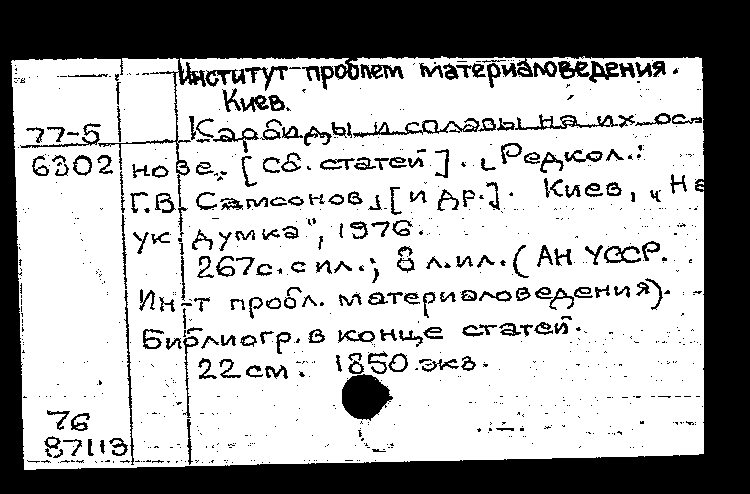 Институт проблем материаловедения.
Киев.
77-5 Карбиды и сплавы на их ос-
6302 нове. [Сб. статей]. [Редкол.:
Г.В. Самсонов] [и др.]. Киев, "На
ук. думка", 1976.
267с. с ил.; 8 л.ил. (АН УССР.
Ин-т пробл. материаловедения).
Библиогр. в конце статей.
22 см. 1850 экз.
76
87113